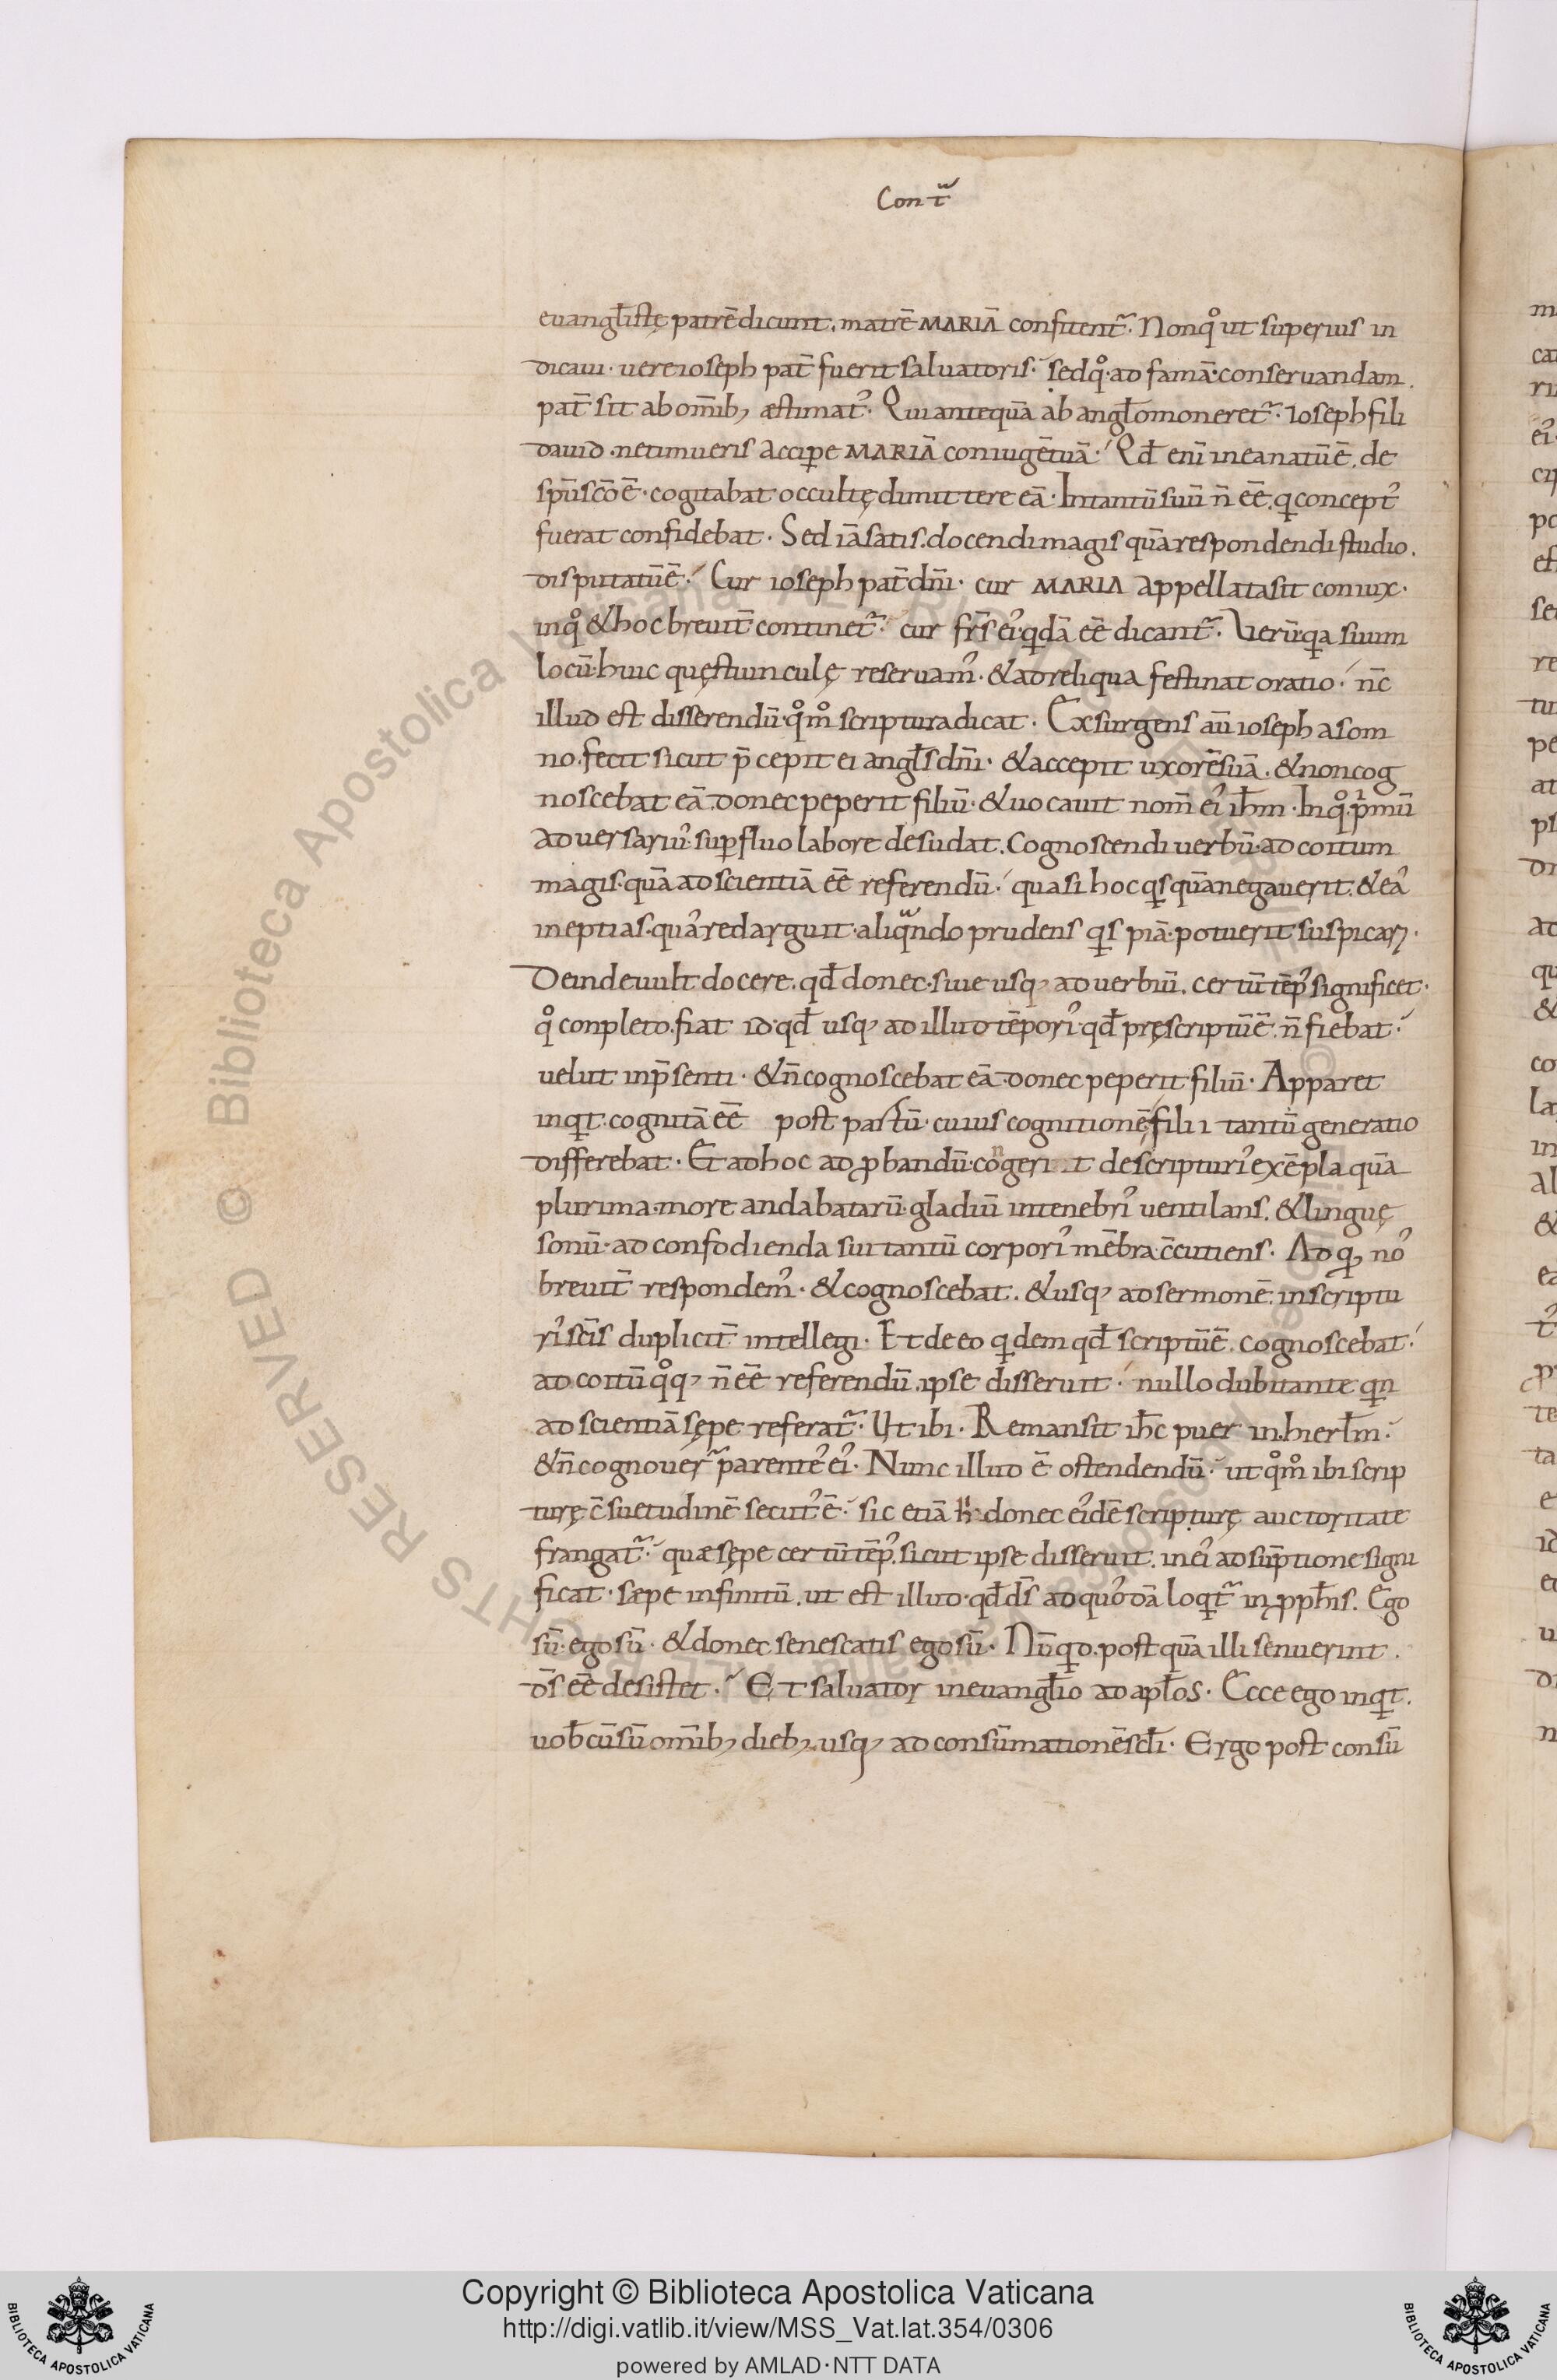 Cont̃
euangl̄istę patrē dicunt. matrē MARIĀ confitent̃. Non qͦ ut superius in
dicaui. uere ioseph pat̄ fuerit saluatoris. sed qͦ ad famā conseruandam.
pat̄ sit ab om̄ib; æstimat᾿. Qui antequā ab angl̄o moneret̃. Ioseph fili
dauid. ne timueris accipe MARIĀ coniugē tuā. Qđ eni̅ in ea natū ē. de
spū scō ē. cogitabat occultę dimittere eā. In tantū suū n̄ eē. q concept᾿
fuerat confidebat. Sed iā satis. docendi magis quā respondendi studio.
disputatū ē. Cur ioseph pat̄ dn̄i. cur MARIA appellata sit coniux.
in qͦ & hoc breuit̄ continet̃. cur fr̄s ei᾿ qdā eē dicant̃. Verū qa suum
locū huic quęstiunculę reseruam᾿. & ad reliqua festinat oratio. n̄c
illud est disserendū. qͦmͦ scriptura dicat. Exsurgens au̅ ioseph a som
no. fecit sicut p̄cepit ei angl̄s dn̄i. & accepit uxorē suā. & non cog
noscebat eā. donec peperit filiū. & uocauit nom̄ ei᾿ ih̄m. In qͦ. pⁱmū
aduersariu᾿. supfluo labore desudat. Cognoscendi uerbū. ad coitum
magis. quā ad scientiā eē referendū. quasi hoc qs quā negauerit. & ea᾿
ineptias. qua᾿ redarguit. aliqndo prudens qs piā potuerit suspicari.
Deinde uult docere. qđ donec. siue usq; aduerbiū. certū tēp᾿ significet.
qͦ conpleto. fiat id. qđ usq; ad illud tēpori᾿. qđ pręscriptū ē. n̄ fiebat.
uelut in p̄senti. & n̄ cognoscebat eā. donec peperit filiū. Apparet
inqt. cognitā eē post partū. cuius cognitionē filii tantū generatio
differebat. Et ad hoc adꝓbandū. cogerit de scripturi᾿ exēpla quā
plurima. more andabatarū. gladiū in tenebri᾿ uentilans. & linguę
sonū. ad confodienda sui tantū corpori᾿ mēbra c̄cutiens. Ad q; no᾿
breuit̄ respondem᾿. & cognoscebat. & usq; ad sermonē. in scriptu
ri᾿ sc̄is duplicit̄ intellegi. Et de eo qdem qđ scriptū ē. cognoscebat.
ad coitū qͦq; n̄ eē referendū. ipse disseruit. nullo dubitante qn
ad scientiā sępe referat̃. Ut ibi. Remansit ih̄c puer in hierl̄m.
& n̄ cognouer̃ parente᾿ ei᾿. Nunc illud ē ostendendū. ut qͦmͦ ibi scrip
turę c̄suetudinē secut᾿ ē. sic etiā h donec ei᾿dē scripturę auctoritate
frangat̃. quæ sępe certū tēp᾿. sicut ipse disseruit. in ei᾿ adsūptione signi
ficat. sæpe infinitū. ut est illud. qđ d̄s ad quo᾿dā loqt̃ in pph̄is. Ego
sū. ego sū. & donec senescatis ego sū. Nūqd. post quā illi senuerint.
d̄s eē desistet. Et saluator in euangl̄io ad apl̄os. Ecce ego inqt.
uob̄cū sū om̄ib; dieb; usq; ad consūmationē sc̄li. Ergo post consū
Copyright © Biblioteca Apostolica Vaticana
http://digi.vatlib.it/view/MSS_Vat.lat.354/0306
powered by AMLAD·NTT DATA